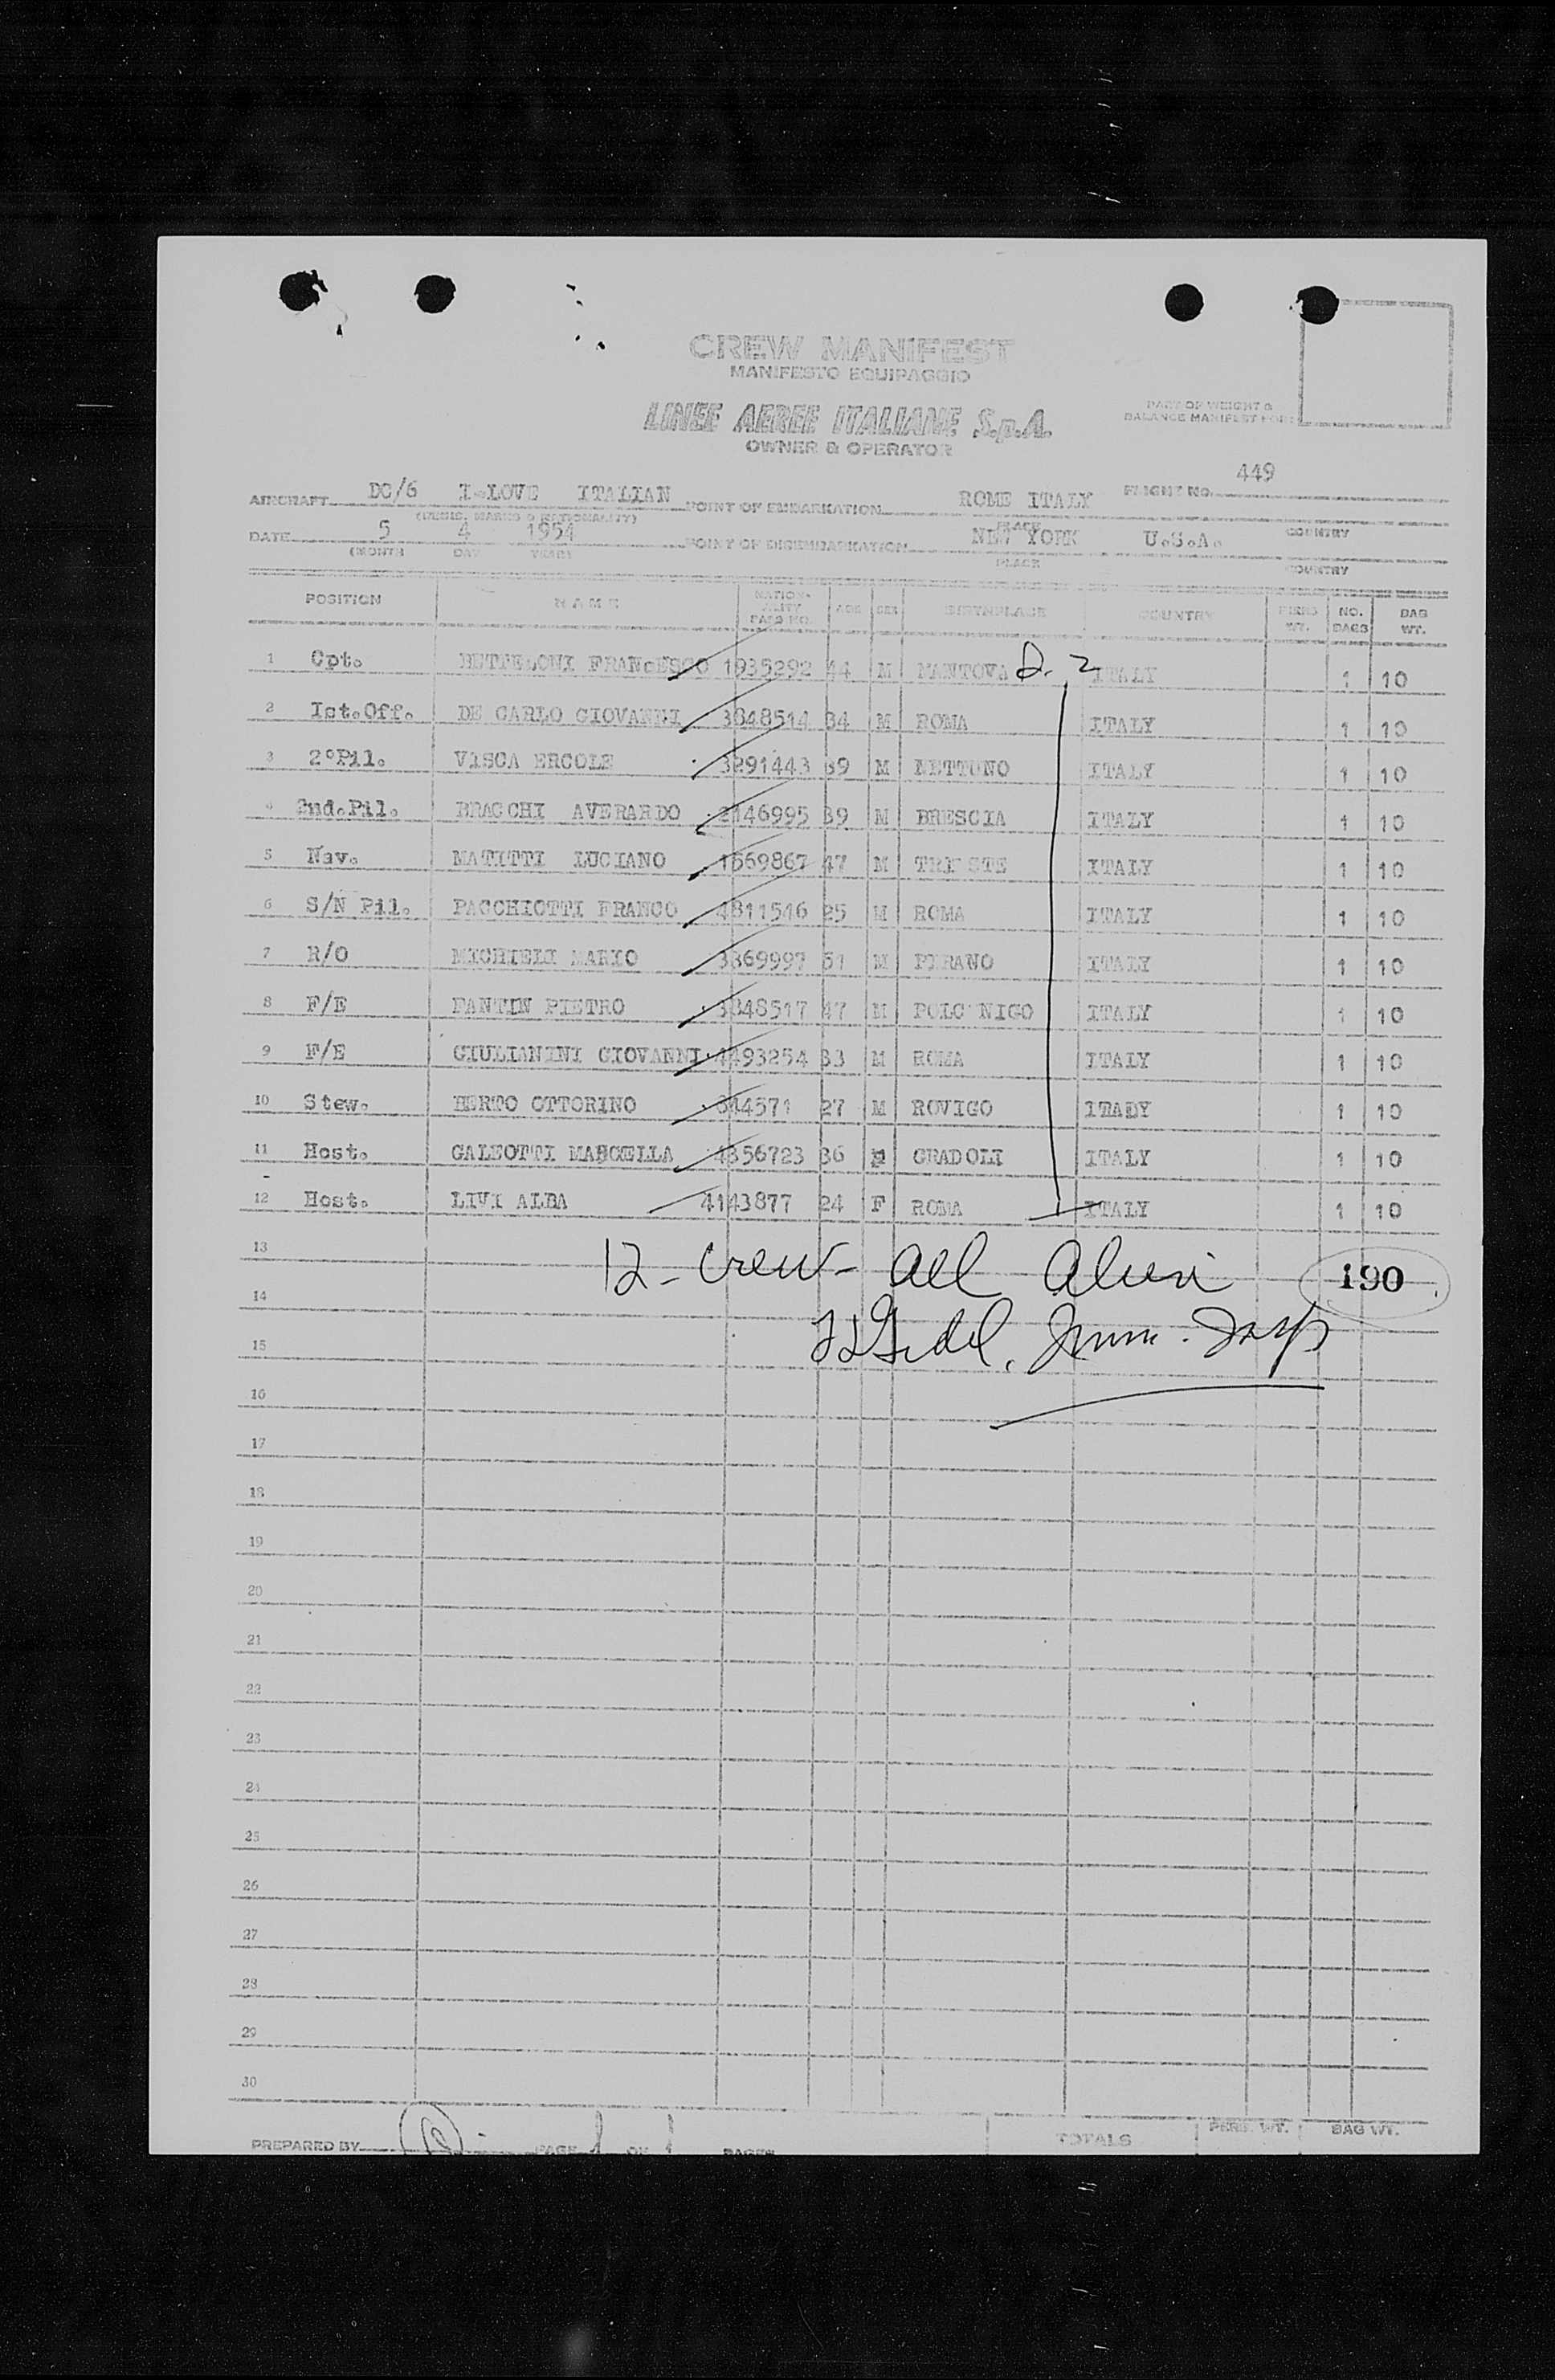 CREW MANIFEST
MANIFESTO EQUIPAGGIO
LINEE AEREE ITALIANE S.p.A.
OWNER & OPERATOR
PART OF WEIGHT &
BALANCE MANIFEST
AIRCRAFT DC/6 I-LOVE ITALIAN POINT OF EMBARKATION ROME ITALY FLIGHT NO. 449
DATE 5 4 1954 POINT OF DISEMBARKATION NEW YORK U.S.A.
(MONTH DAY YEAR) PLACE COUNTRY
POSITION NAME NATION-ALITY PASS NO. AGE SEX BIRTHPLACE COUNTRY PERS WT. NO. BAGS BAG WT.
1 Cpt. BETTELONI FRANCESCO 1935292 44 M MANTOVA D. 2 ITALY 1 10
2 Ist.Off. DE CARLO GIOVANNI 3848514 34 M ROMA ITALY 1 10
3 2°Pil. VISCA ERCOLE 3291443 39 M NETTUNO ITALY 1 10
4 2nd.Pil. BRACCHI AVERARDO 2146995 39 M BRESCIA ITALY 1 10
5 Nav. MATITTI LUCIANO 1569867 47 M TRI STE ITALY 1 10
6 S/N Pil. PACCHIOTTI FRANCO 4811546 25 M ROMA ITALY 1 10
7 R/O MICHIELI MARIO 3869997 51 M PIRANO ITALY 1 10
8 F/E FANTIN PIETRO 3848517 47 M POLC NIGO ITALY 1 10
9 F/E GIULIANINI GIOVANNI 4493254 33 M ROMA ITALY 1 10
10 Stew. BERTO OTTORINO 344571 27 M ROVIGO ITALY 1 10
11 Host. GALEOTTI MARCELLA 4356723 36 F GRADOLI ITALY 1 10
12 Host. LIVI ALBA 4143877 24 F ROMA ITALY 1 10
13 12 - Crew - all alien 190
14
15 Imm. Insp
16
17
18
19
20
21
22
23
24
25
26
27
28
29
30
PREPARED BY PAGE 1 OF 1 PAGES TOTALS PERS. WT. BAG WT.